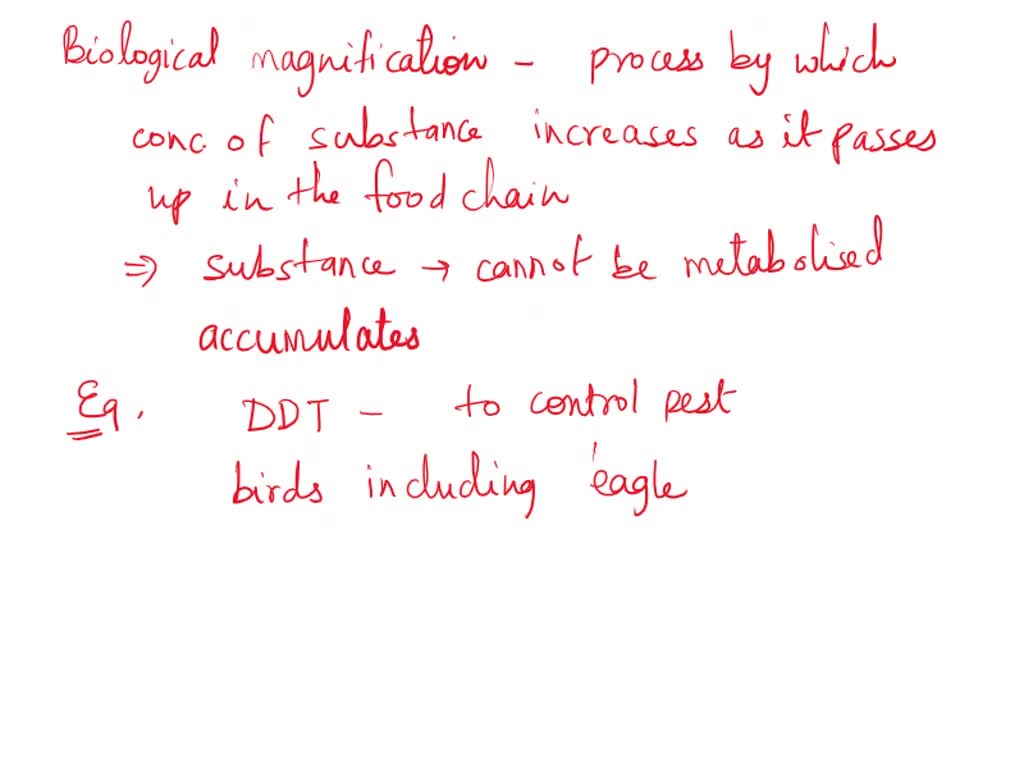 Biological magnification - process by which
conc. of substance increases as it passes
up in the food chain
⇒ substance → cannot be metabolised
accumulates
Eg. DDT - to control pest
birds including eagle